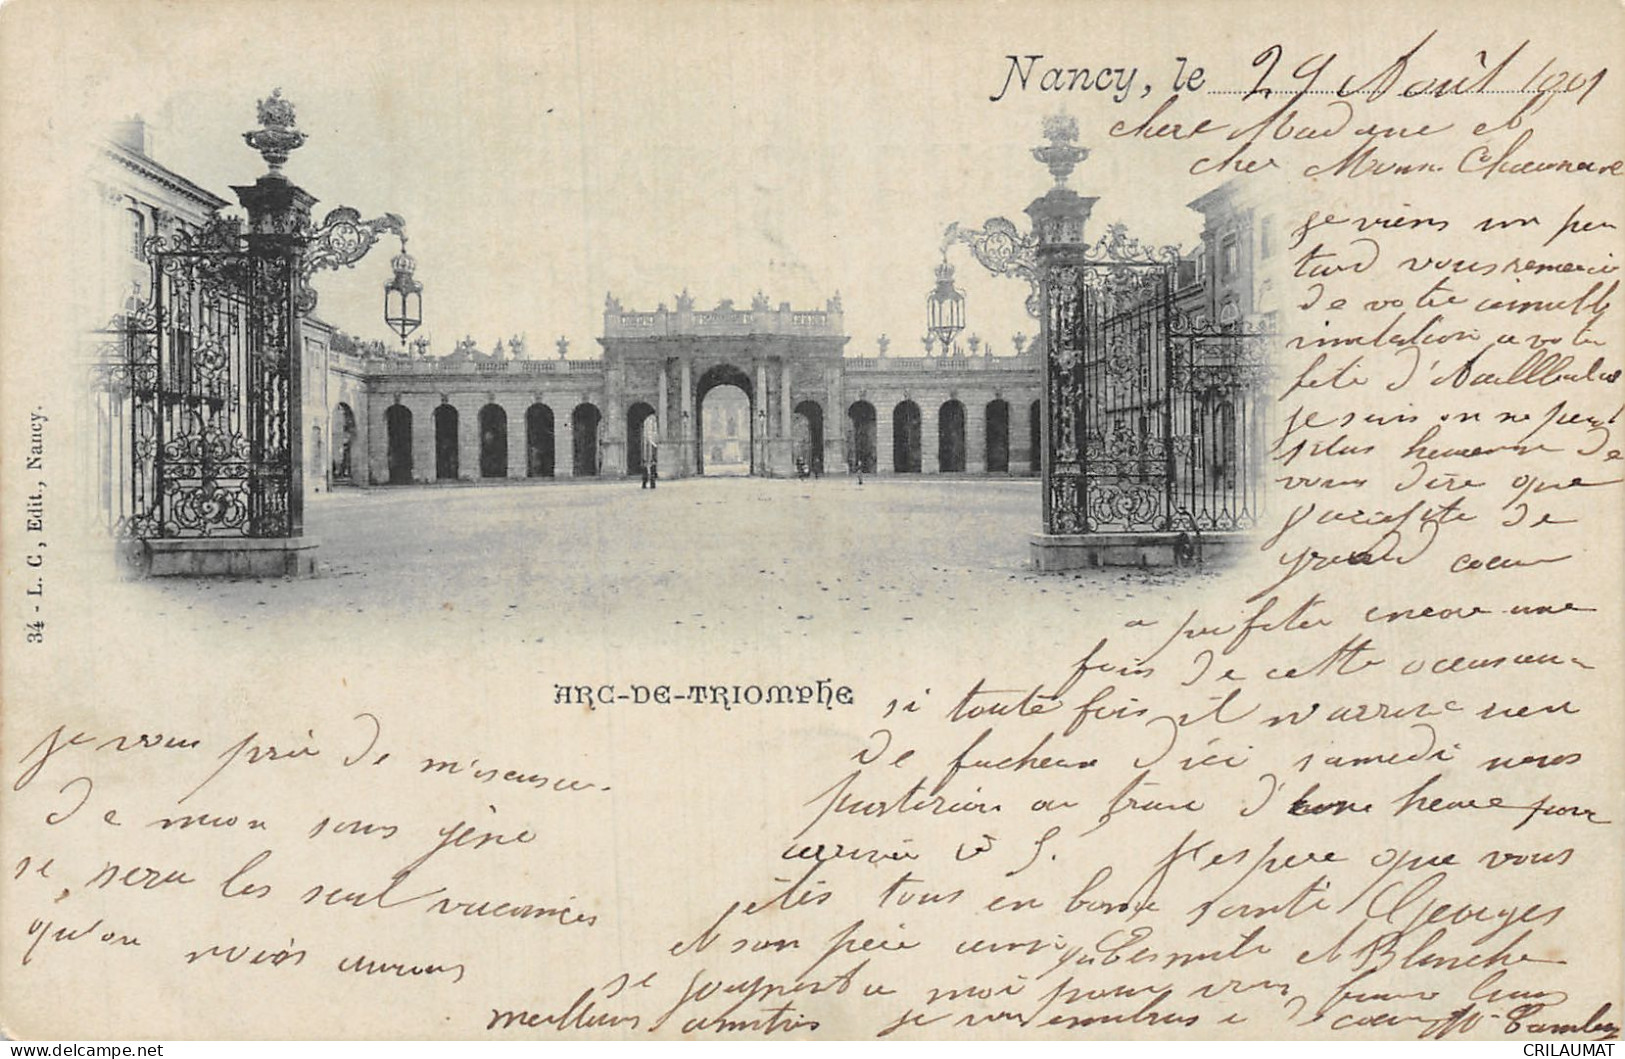 Nancy, le 29 Août 1901
chere Madame et
cher Monr.
je viens un peu
tard vous remercier
de votre aimable
invitation a votre
fête d'
je suis on ne peut
plus heureux de
vous dire que
j'accepte de
grand coeur
a profiter encore une
fois de cette occasion
si toute fois il n'arrive rien
de facheux d'ici samedi nous
partirions au train d'bonne heure pour
arrivée à S. J'espere que vous
êtes tous en bonne santé Georges
et son père ainsi qu'Ernest et Blanche
se joignent a moi pour vous
meilleurs amitiés je vous embrasse de coeur
ARC-DE-TRIOMPHE
34 - L. C, Edit., Nancy.
je vous prie de m'excuser
de mon sans gêne
se sera les seul vacances
qu'on
CRILAUMAT